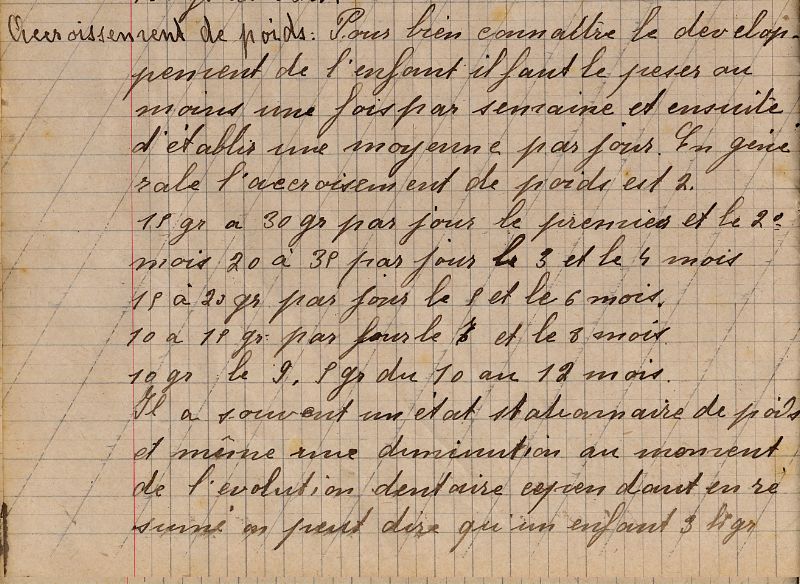 Accroissement de poids: Pour bien connaître le develop-
pement de l'enfant il faut le peser au
moins une fois par semaine et ensuite
d'établir une moyenne par jour. En géné
rale l'accroisement de poids est 2.
15 gr a 30 gr par jour le premier et le 2e
mois 20 à 35 par jour le 3 et le 4 mois
15 à 20 gr par jour le 5 et le 6 mois.
10 a 15 gr par jour le 7 et le 8 mois
10 gr le 9. 5 gr du 10 au 12 mois.
Il a souvent un état stationnaire de poids
et même une diminution au moment
de l'evolution dentaire cependant en ré
sumé on peut dire qu'un enfant 3